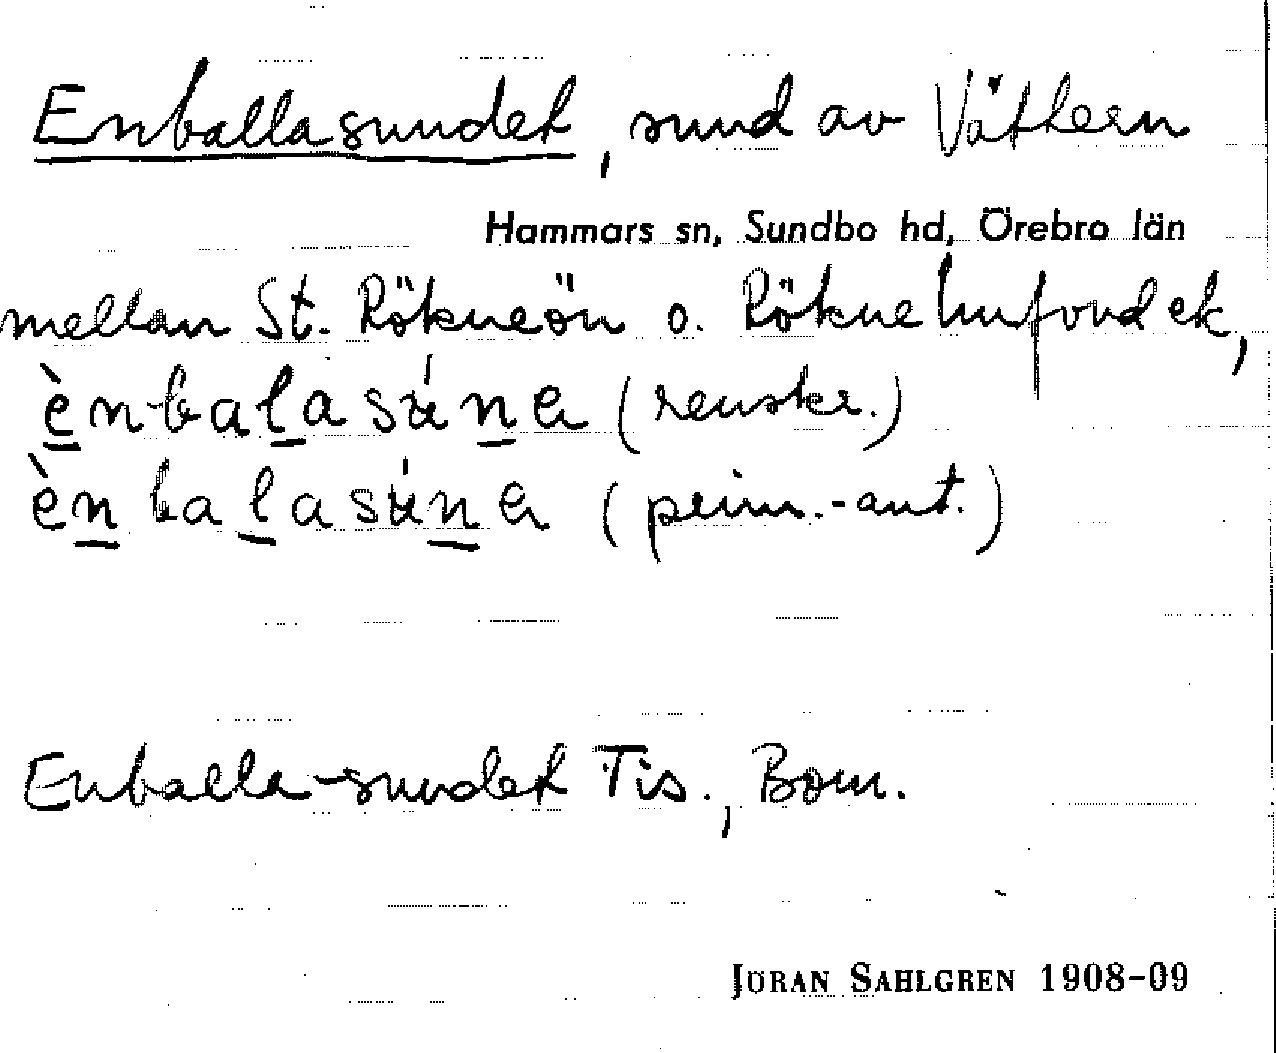 Enballasundet, sund av Vättern
Hammars sn, Sundbo hd, Örebro län
mellan St. Rökneön o. Röknehuvudet,
ènbalasúnɐ (renskr.)
ènbalasúnɐ (prim.-ant.)
Enballa-sundet Tis., Bom.
JÖRAN SAHLGREN 1908-09